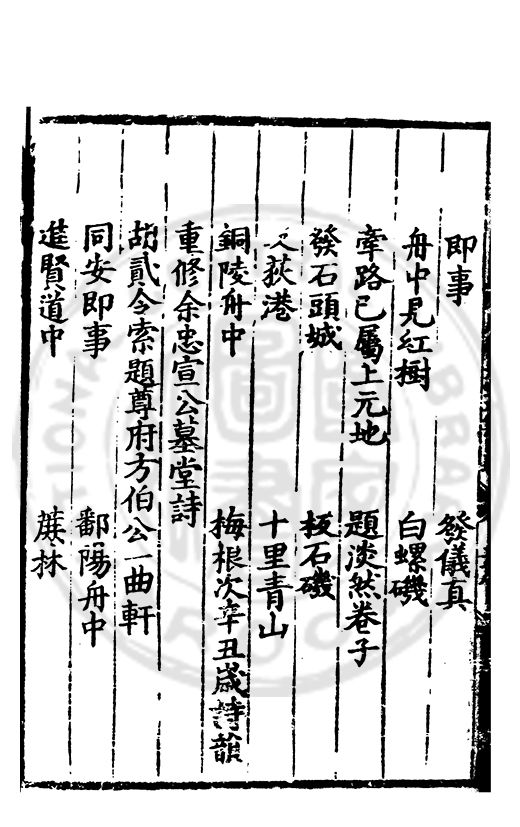 即事　發儀真
舟中見紅樹　白螺磯
牽路已屬上元地　題淡然卷子
發石頭城　板石磯
荻港　十里青山
銅陵舟中　梅根次辛丑歲詩韻
重修余忠宣公墓堂詩
胡貳令索題尊府方伯公一曲軒
同安即事　鄱陽舟中
進賢道中　蔗林